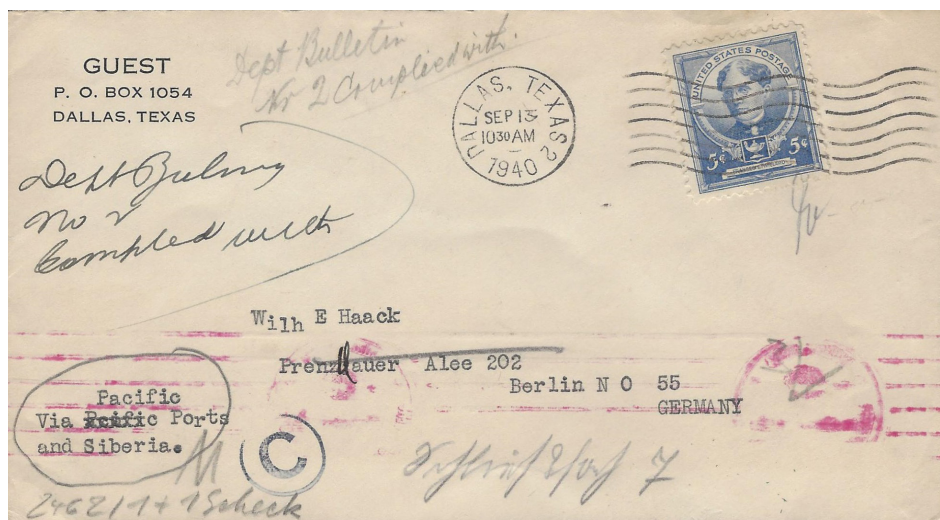 GUEST
P. O. BOX 1054
DALLAS, TEXAS
Dept Bulletin
Nr 2 Complied with.
DALLAS, TEXAS 2
SEP 13
1030 AM
1940
UNITED STATES POSTAGE
5¢ 5¢
Dept
No 2
Complied with
Wilh E Haack
Prenzlauer Alee 202
Berlin N O 55
GERMANY
Pacific
Via Pcific Ports
and Siberia.
C
Schließfach 7
2462/1 + 1 Scheck